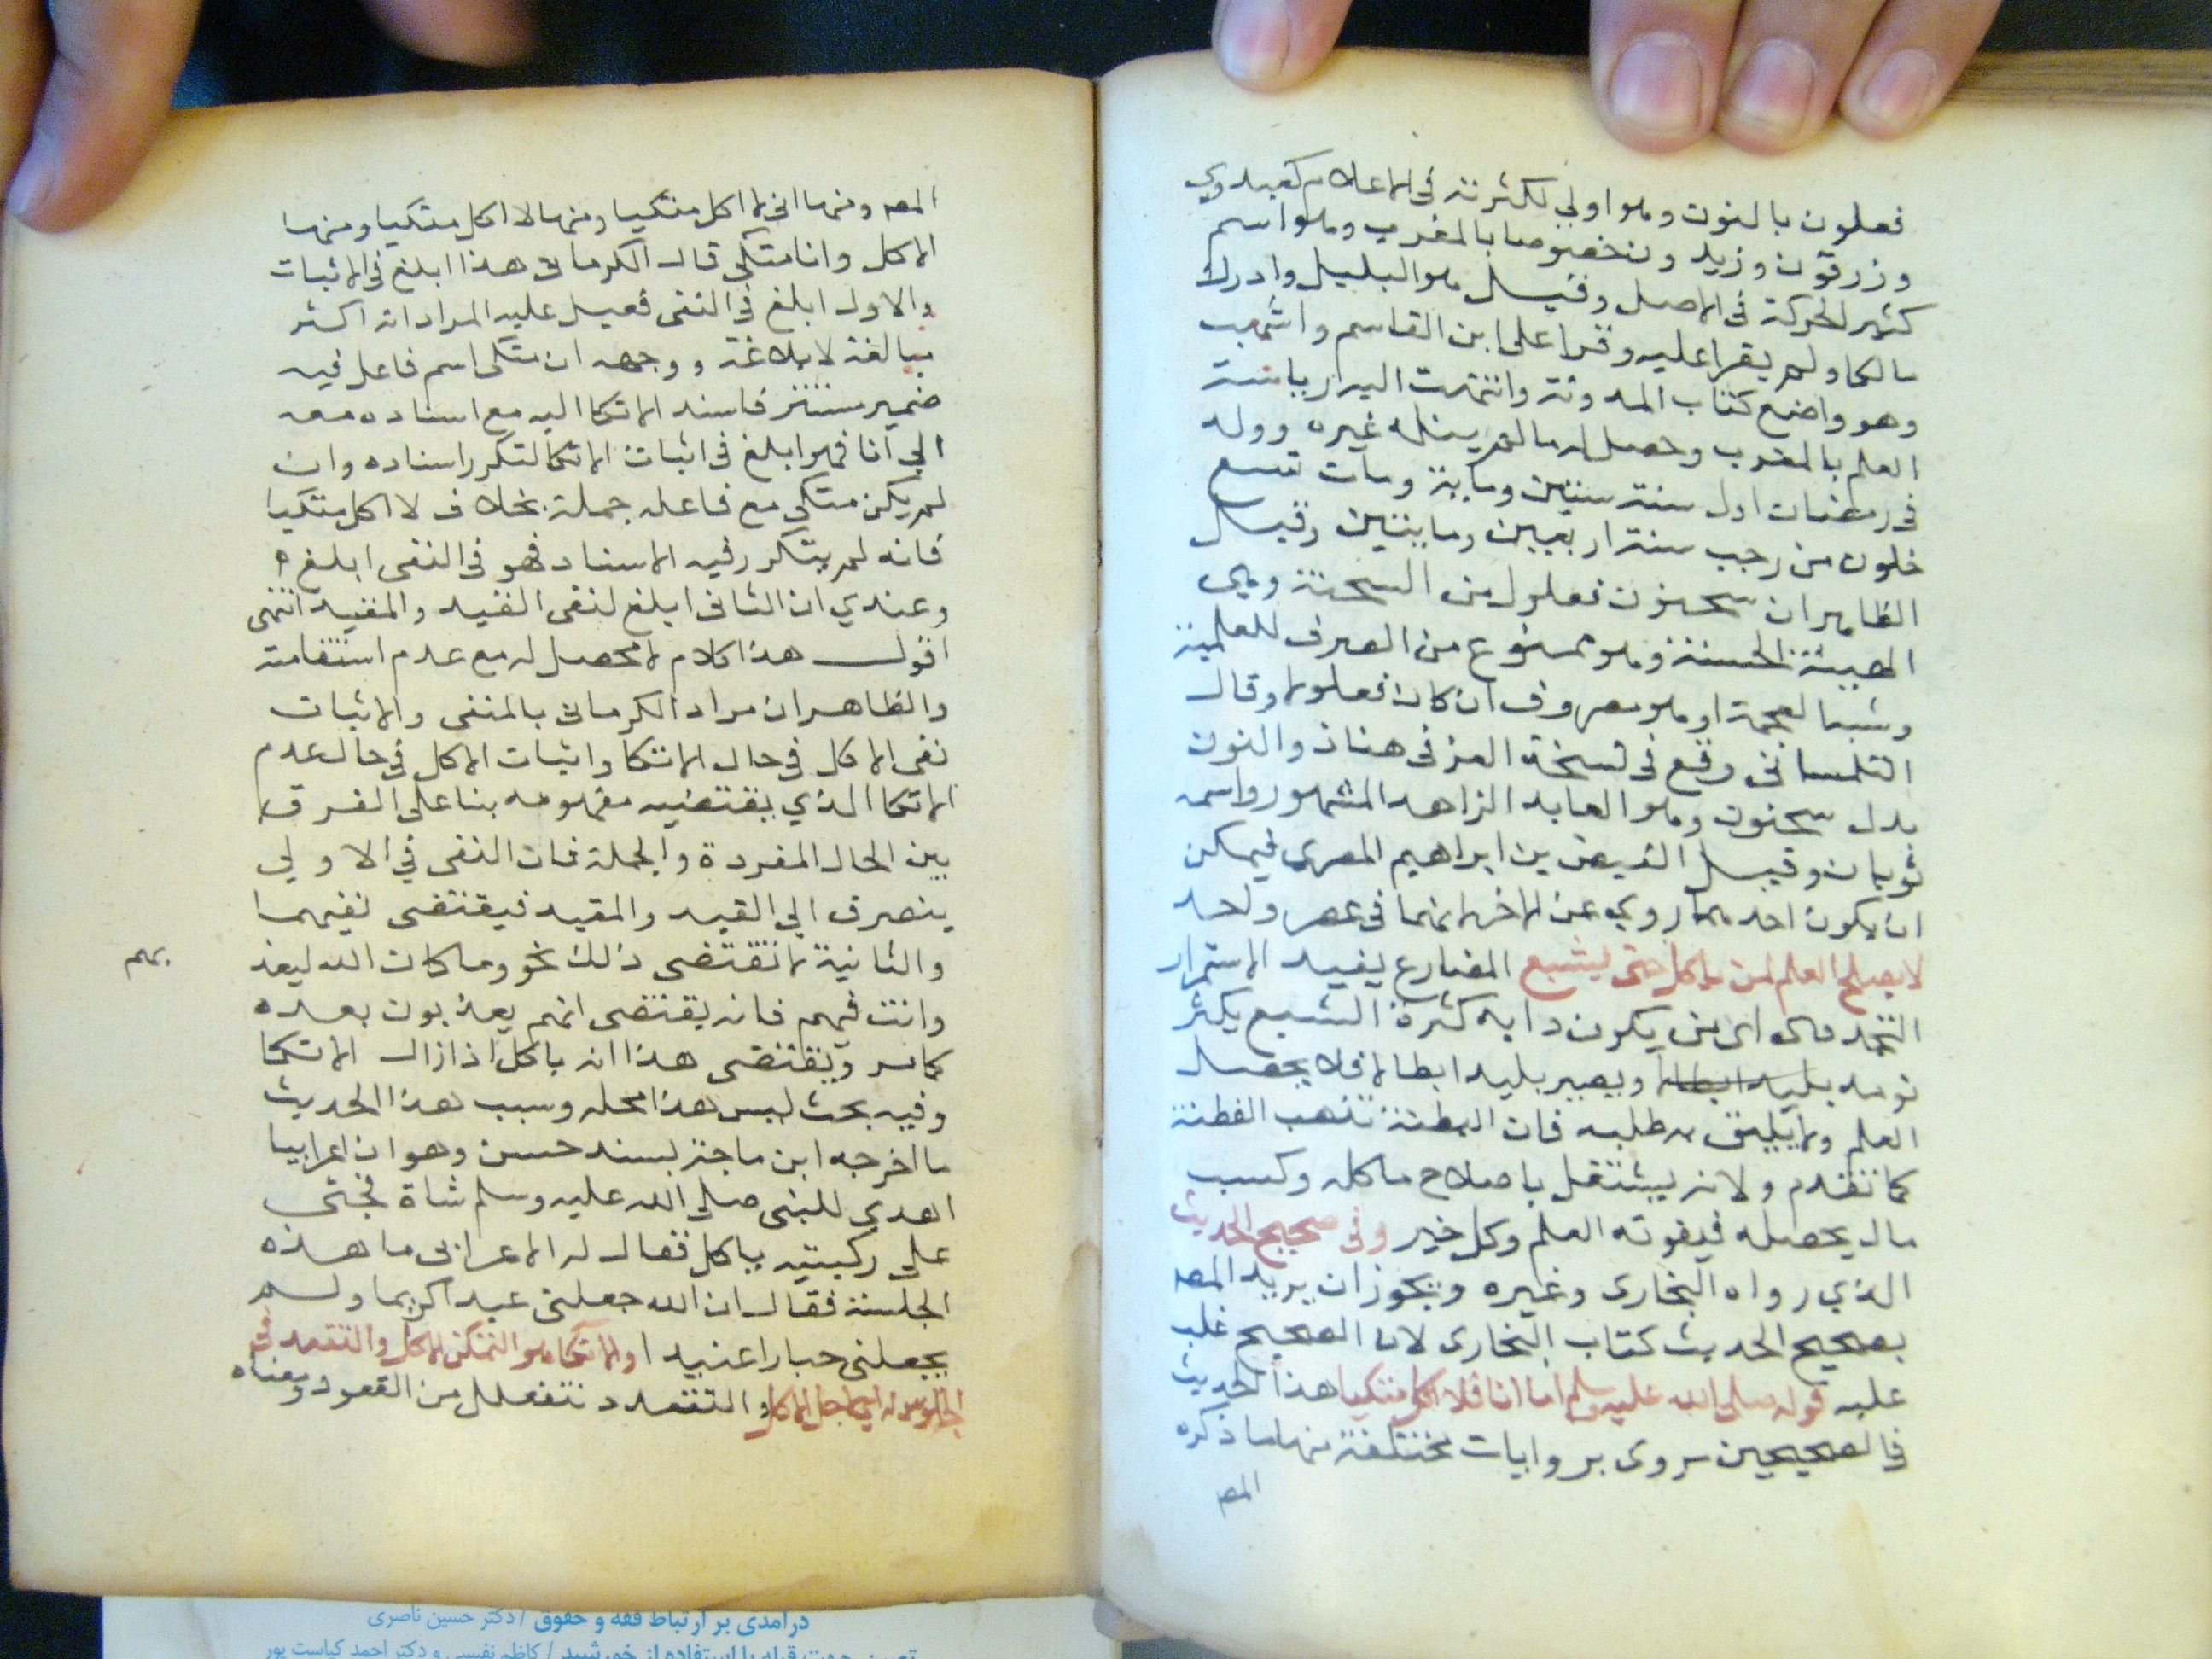 فعلون بالنون وهو اولي لكثرته في الاعلام كعبدون
وزرقون وزيد ون خصوصا بالمغرب وهو اسم
كثير الحركة في الاصل وقيل هو البليل وادرك
مالكا ولم يقرا عليه وقرا على ابن القاسم واشهب
وهو واضع كتاب المدونة وانتهت اليه رياسة
العلم بالمغرب وحصل له ما لم ينله غيره وولد
في رمضان اول سنة ستين وماية ومات تسع
خلون من رجب سنة اربعين وماىتين وقيل
الظاهر ان سحنون فعلول من السحنة وهي
الهيئة الحسنة وهو ممنوع من الصرف للعلمية
وشبه العجمة او هو مصروف ان كان فعلولا وقال
التلمساني وقع في نسخة العز في هنا ذ والنون
بدل سحنون وهو العابد الزاهد المشهور واسمه
ثوبان وقيل الفيض بن ابراهيم المصرى فيمكن
ان يكون احدهما روي عن الاخر لانهما في عصر واحد
لا يصلح العلم لمن ياكل حتى يشبع المضارع يفيد الاستمرار
التجددى اى من يكون دابه كثرة الشبع يكثر
نومه بليد ابطالا ويصير بليد ابطالا فلا يحصل
العلم ولا يليق به طلبه فان البطنة تذهب الفطنة
كما تقدم ولانه يشتغل باصلاح ماكله وكسب
مال يحصله فيفوته العلم وكل خير وفى صحيح الحديث
الذي رواه البخارى وغيره ويجوز ان يريد المصـ
بصحيح الحديث كتاب البخارى لان الصحيح غلب
عليه قوله صلى الله عليه وسلم اما انا فلا اكل متكيا هذا الحديث
في الصحيحين مروى بروايات مختلفة منها ما ذكره
المصـ
المصـ ومنها انى لا اكل متكيا ومنها لا اكل متكيا ومنها
لا اكل وانا متكى قال الكرمانى هذا ابلغ في الاثبات
والاول ابلغ في النفى فقيل عليه المراد انه اكثر
مبالغة لا بلاغة ووجهه ان متكى اسم فاعل فيه
ضمير مستتر فاسند الاتكا اليه مع اسناده معه
الي انا فهو ابلغ في اثبات الاتكا لتكرر اسناده وان
لم يكن متكي مع فاعله جملة بخلاف لا اكل متكيا
فانه لم يتكرر فيه الاسناد فهو في النفى ابلغ
وعندي ان الثانى ابلغ لنفى القيد والمقيد انتهى
اقول هذا كلام لا محصل له مع عدم استقامته
والظاهر ان مراد الكرمانى بالمنفى والاثبات
نفى الاكل في حال الاتكا واثبات الاكل في حال عدم
الاتكا الذي يقتضيه مفهومه بنا على الفرق
بين الحال المفردة والجملة فان النفى في الاولي
ينصرف الي القيد والمقيد فيقتضى نفيهما
والثانية لا تقتضى ذلك نحو وما كان الله ليعذ
بهم
وانت فيهم فانه يقتضى انهم يعذبون بعده
كما مر ويقتضى هذا انه ياكل اذا زال الاتكا
وفيه بحث ليس هذا محله وسبب هذا الحديث
ما اخرجه ابن ماجة بسند حسن وهو ان اعرابيا
اهدي للنبى صلى الله عليه وسلم شاة فجثى
على ركبتيه ياكل فقال له الاعرابى ما هذه
الجلسة فقال ان الله جعلنى عبدا كريما ولم
يجعلنى جبارا عنيدا والاتكا هو التمكن للاكل والتقعدد في
الجلوس له اى لاجل الاكل والتقعدد تفعلل من القعود ومعناه
درآمدی بر ارتباط فقه و حقوق / دکتر حسین ناصری
تعیین جهت قبله با استفاده از خورشید / کاظم نفیسی و دکتر احمد کیاست پور